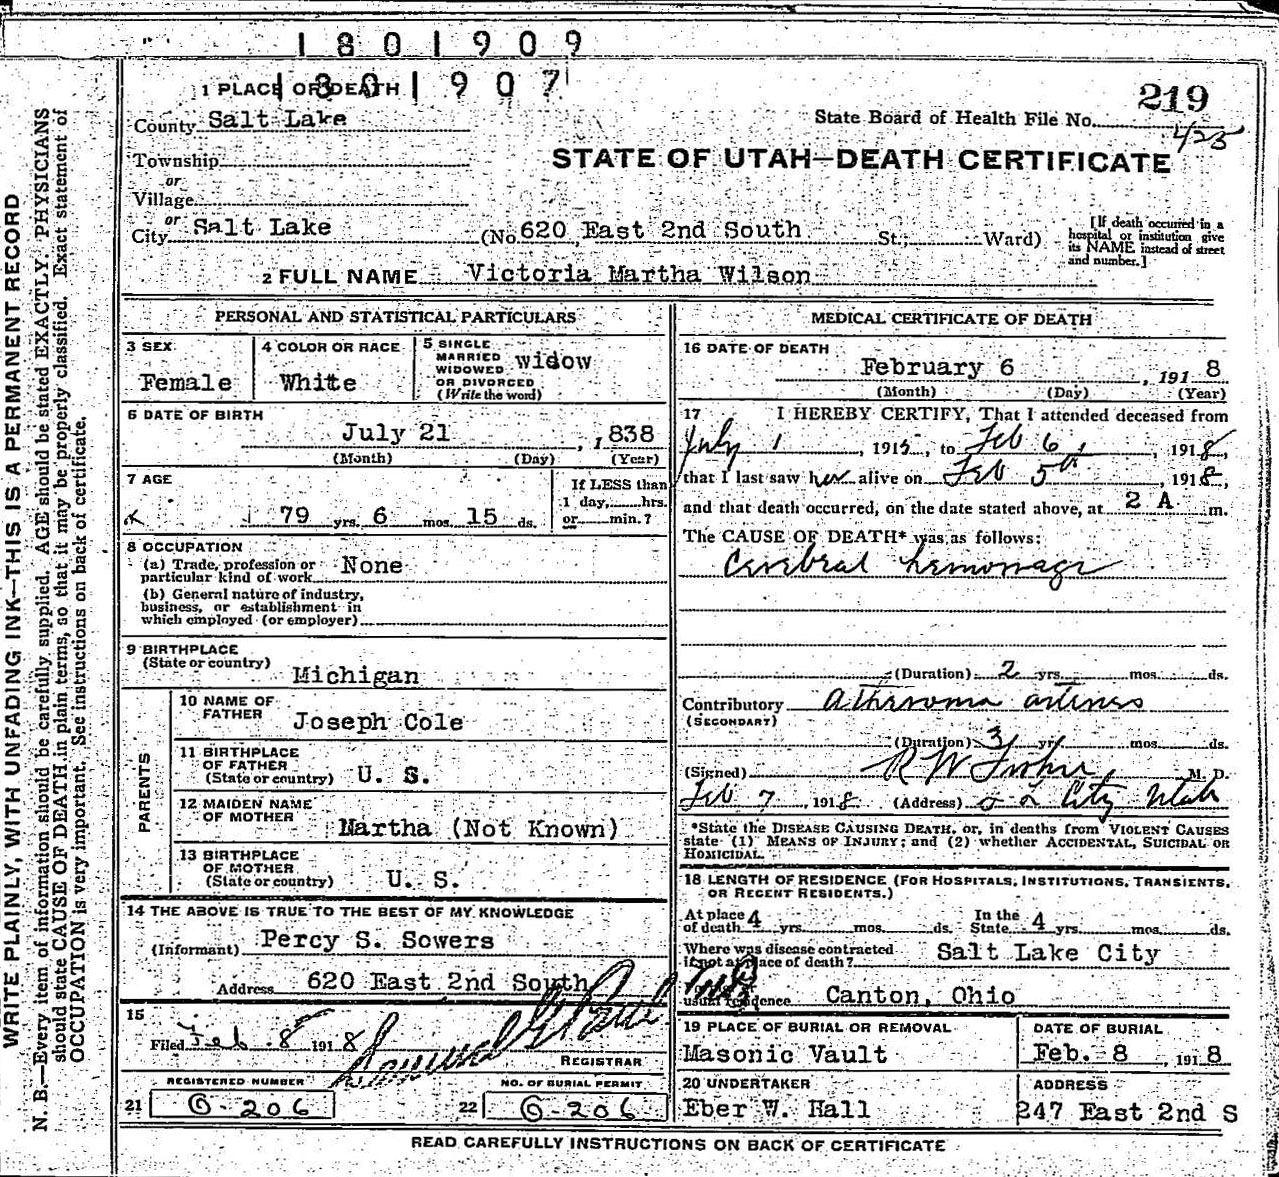 1801909
1801907
1 PLACE OF DEATH
219
County Salt Lake
State Board of Health File No.
425
Township
STATE OF UTAH—DEATH CERTIFICATE
or
Village
or
City Salt Lake (No. 620 East 2nd South St.; Ward)
[If death occurred in a hospital or institution give its NAME instead of street and number.]
2 FULL NAME Victoria Martha Wilson
PERSONAL AND STATISTICAL PARTICULARS
3 SEX
Female
4 COLOR OR RACE
White
5 SINGLE
MARRIED
WIDOWED
OR DIVORCED
(Write the word)
widow
6 DATE OF BIRTH
July 21, 1838
(Month) (Day) (Year)
7 AGE
79 yrs. 6 mos. 15 ds.
If LESS than
1 day, hrs.
or min.?
8 OCCUPATION
(a) Trade, profession or
particular kind of work None
(b) General nature of industry,
business, or establishment in
which employed (or employer)
9 BIRTHPLACE
(State or country)
Michigan
PARENTS
10 NAME OF
FATHER
Joseph Cole
11 BIRTHPLACE
OF FATHER
(State or country) U. S.
12 MAIDEN NAME
OF MOTHER
Martha (Not Known)
13 BIRTHPLACE
OF MOTHER
(State or country) U. S.
14 THE ABOVE IS TRUE TO THE BEST OF MY KNOWLEDGE
(Informant) Percy S. Sowers
Address 620 East 2nd South
15
Filed Feb. 8 1918
REGISTRAR
REGISTERED NUMBER
21 B-206
NO. OF BURIAL PERMIT
22 B-206
MEDICAL CERTIFICATE OF DEATH
16 DATE OF DEATH
February 6, 1918
(Month) (Day) (Year)
17 I HEREBY CERTIFY, That I attended deceased from
July 1, 1915, to Feb 6, 1918,
that I last saw her alive on Feb 5th, 1918,
and that death occurred, on the date stated above, at 2 A m.
The CAUSE OF DEATH* was as follows:
Cerebral hemorrage
(Duration) 2 yrs. mos. ds.
Contributory Atheroma arteries
(SECONDARY)
(Duration) 3 yrs. mos. ds.
(Signed) R W M. D.
Feb 7, 1918 (Address) S L City Utah
*State the DISEASE CAUSING DEATH, or, in deaths from VIOLENT CAUSES
state (1) MEANS OF INJURY; and (2) whether ACCIDENTAL, SUICIDAL OR
HOMICIDAL.
18 LENGTH OF RESIDENCE (FOR HOSPITALS, INSTITUTIONS, TRANSIENTS,
OR RECENT RESIDENTS.)
At place
of death 4 yrs. mos. ds.
In the
State 4 yrs. mos. ds.
Where was disease contracted
if not at place of death? Salt Lake City
usual residence Canton, Ohio
19 PLACE OF BURIAL OR REMOVAL
Masonic Vault
DATE OF BURIAL
Feb. 8, 1918
20 UNDERTAKER
Eber W. Hall
ADDRESS
247 East 2nd S
READ CAREFULLY INSTRUCTIONS ON BACK OF CERTIFICATE
WRITE PLAINLY, WITH UNFADING INK—THIS IS A PERMANENT RECORD
N. B.—Every item of information should be carefully supplied. AGE should be stated EXACTLY. PHYSICIANS
should state CAUSE OF DEATH in plain terms, so that it may be properly classified. Exact statement of
OCCUPATION is very important. See instructions on back of certificate.